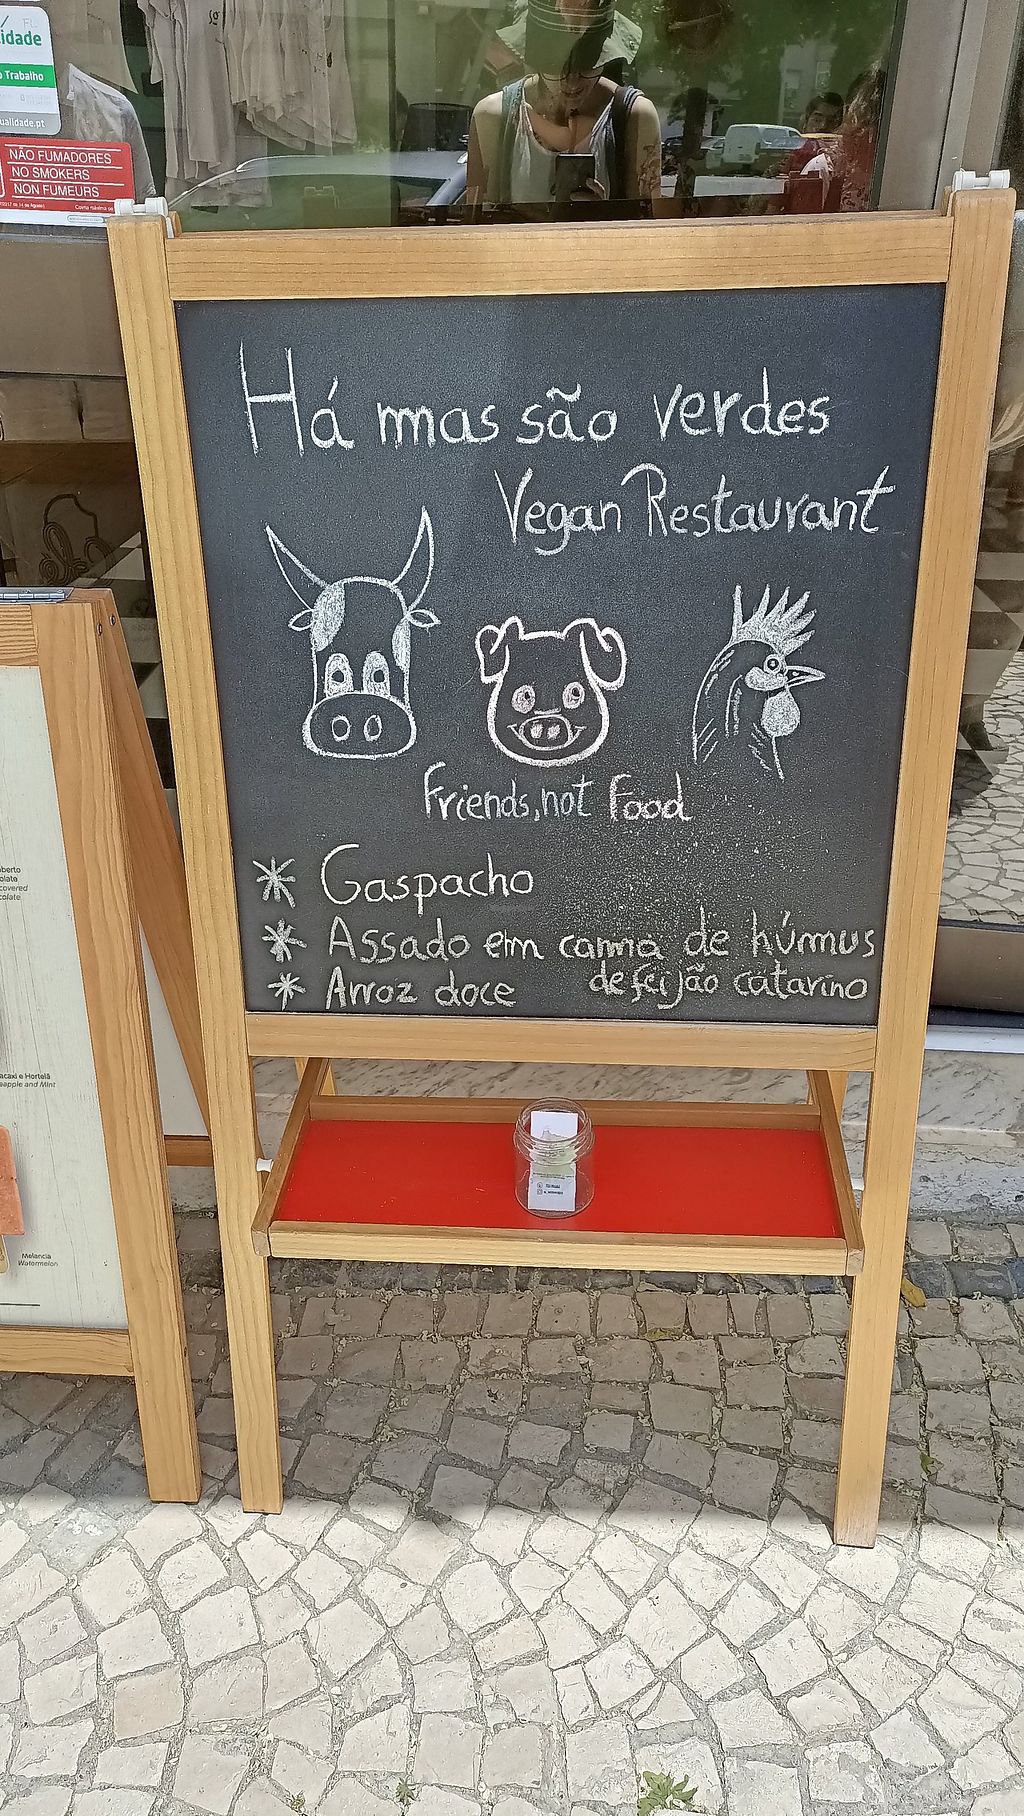 idade
o Trabalho
ualidade.pt
NÃO FUMADORES
NO SMOKERS
NON FUMEURS
Há mas são verdes
Vegan Restaurant
Friends, not Food
* Gaspacho
* Assado em cama de húmus
de feijão catarino
* Arroz doce
berto
olate
covered
colate
acaxi e Hortelã
eapple and Mint
Melancia
Watermelon